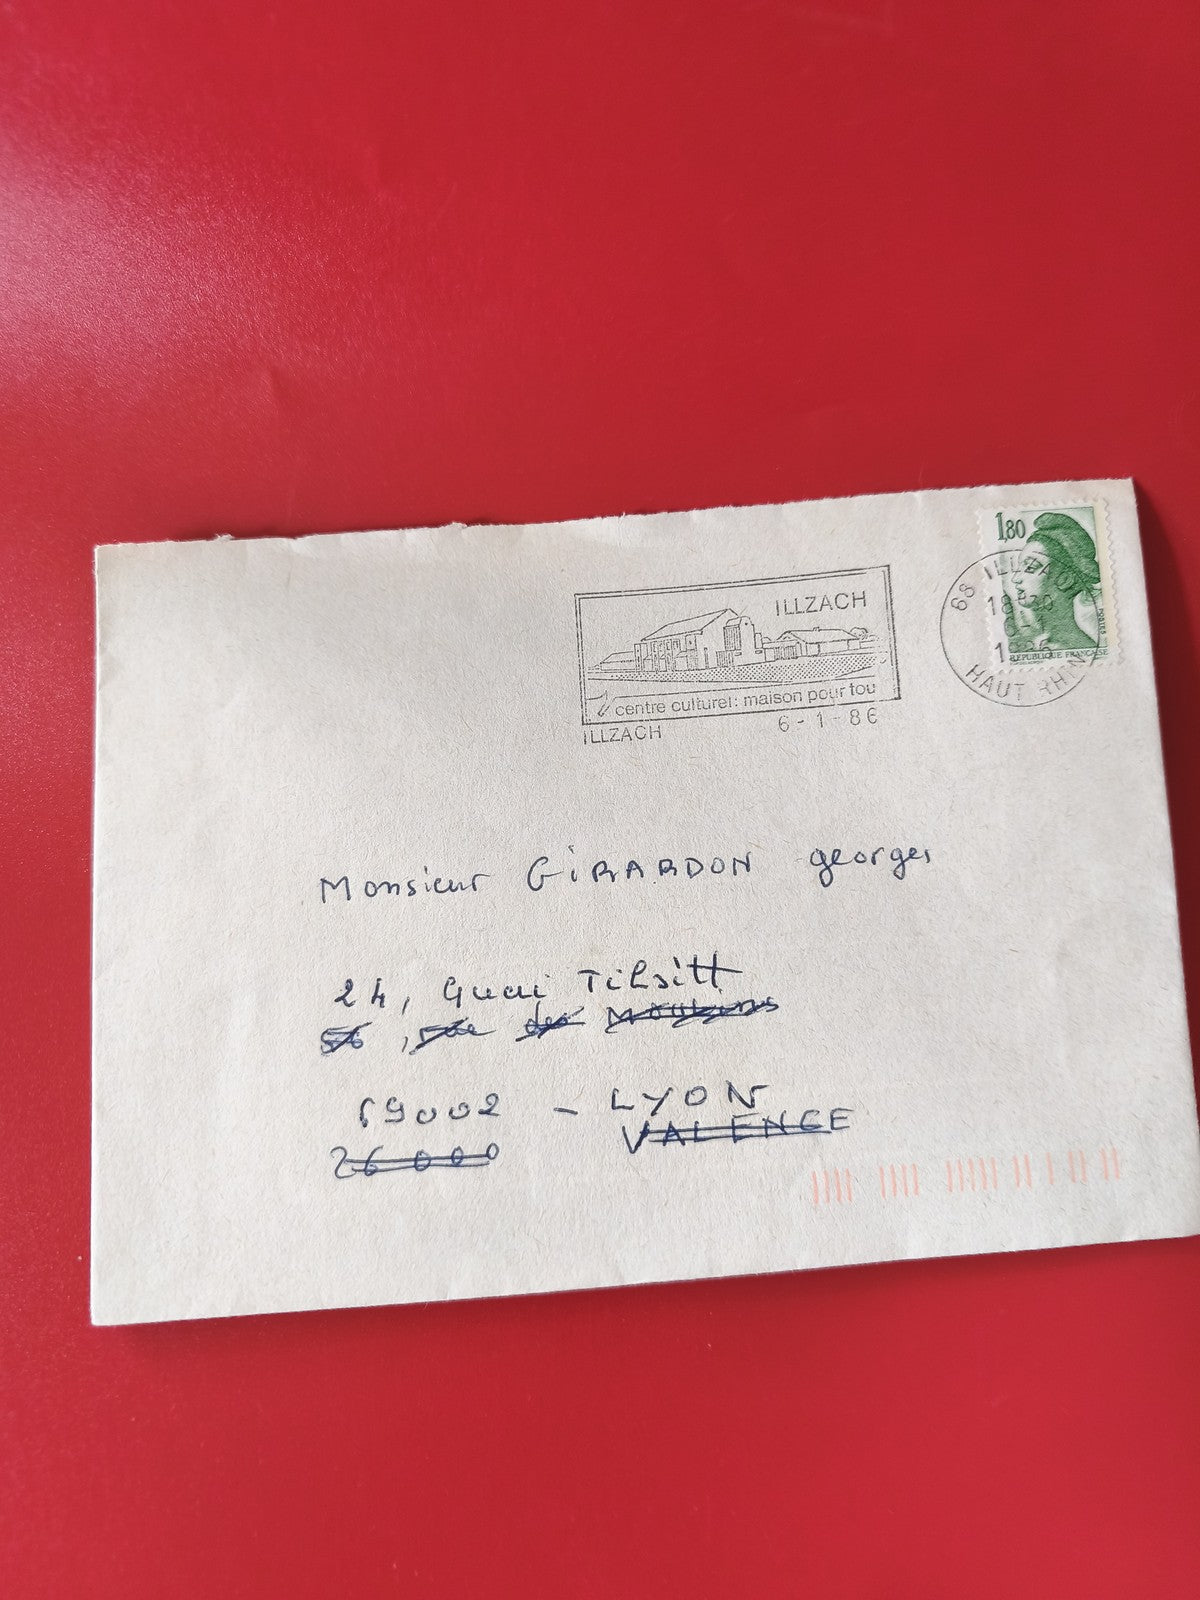 1,80
RÉPUBLIQUE FRANÇAISE
POSTES
68 ILLZACH
18H30
6-1
1986
HAUT RHIN
ILLZACH
centre culturel: maison pour tou
ILLZACH
6-1-86
Monsieur GiRARDON georges
24, Quai Tilsitt
56, rue des
69002 - LYON
26000 VALENCE